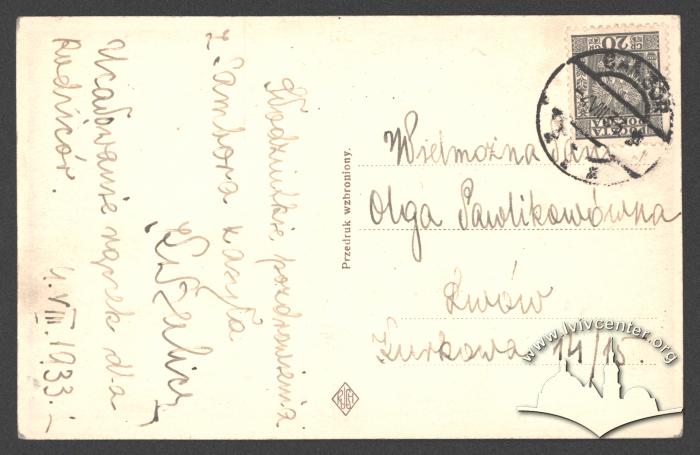 Słodziutkie pozdrowienia
z Sambora zasyła
Ucałowanie rączek dla
rodziców.
4.VIII.1933.-
Przedruk wzbroniony.
20 GR
POCZTA
POLSKA
SAMBOR
Wielmożna Pani
Olga Pawlikowówna
Lwów
Żurkowa 14/15.
www.lvivcenter.org